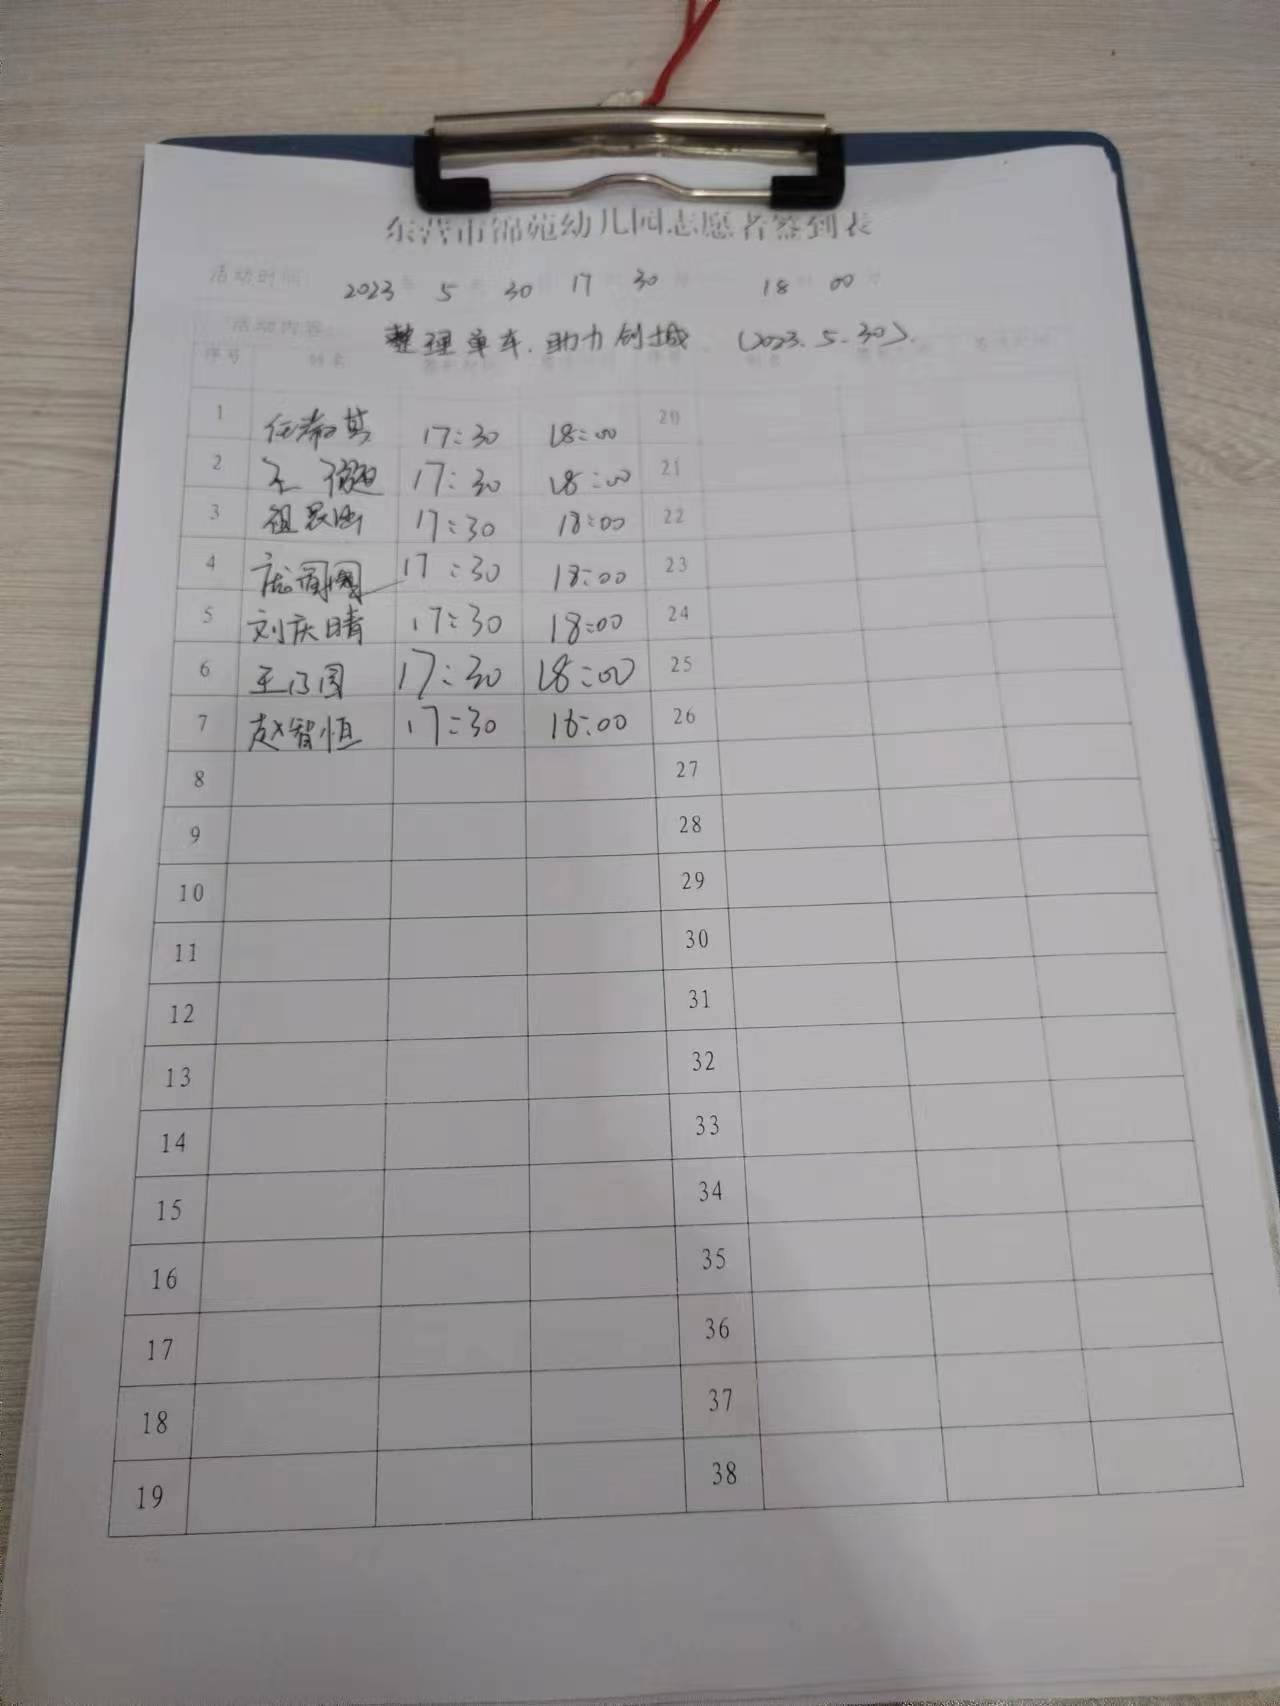 东营市锦苑幼儿园志愿者签到表
活动时间: 2023年 5月 30日 17时 30分 18时 00分
活动内容: 整理单车、助力创城 (2023.5.30).
序号 姓名
1 17:30 18:00 20
2 17:30 18:00 21
3 17:30 18:00 22
4 17:30 18:00 23
5 刘庆晴 17:30 18:00 24
6 17:30 18:00 25
7 赵智恒 17:30 18:00 26
8 27
9 28
10 29
11 30
12 31
13 32
14 33
15 34
16 35
17 36
18 37
19 38